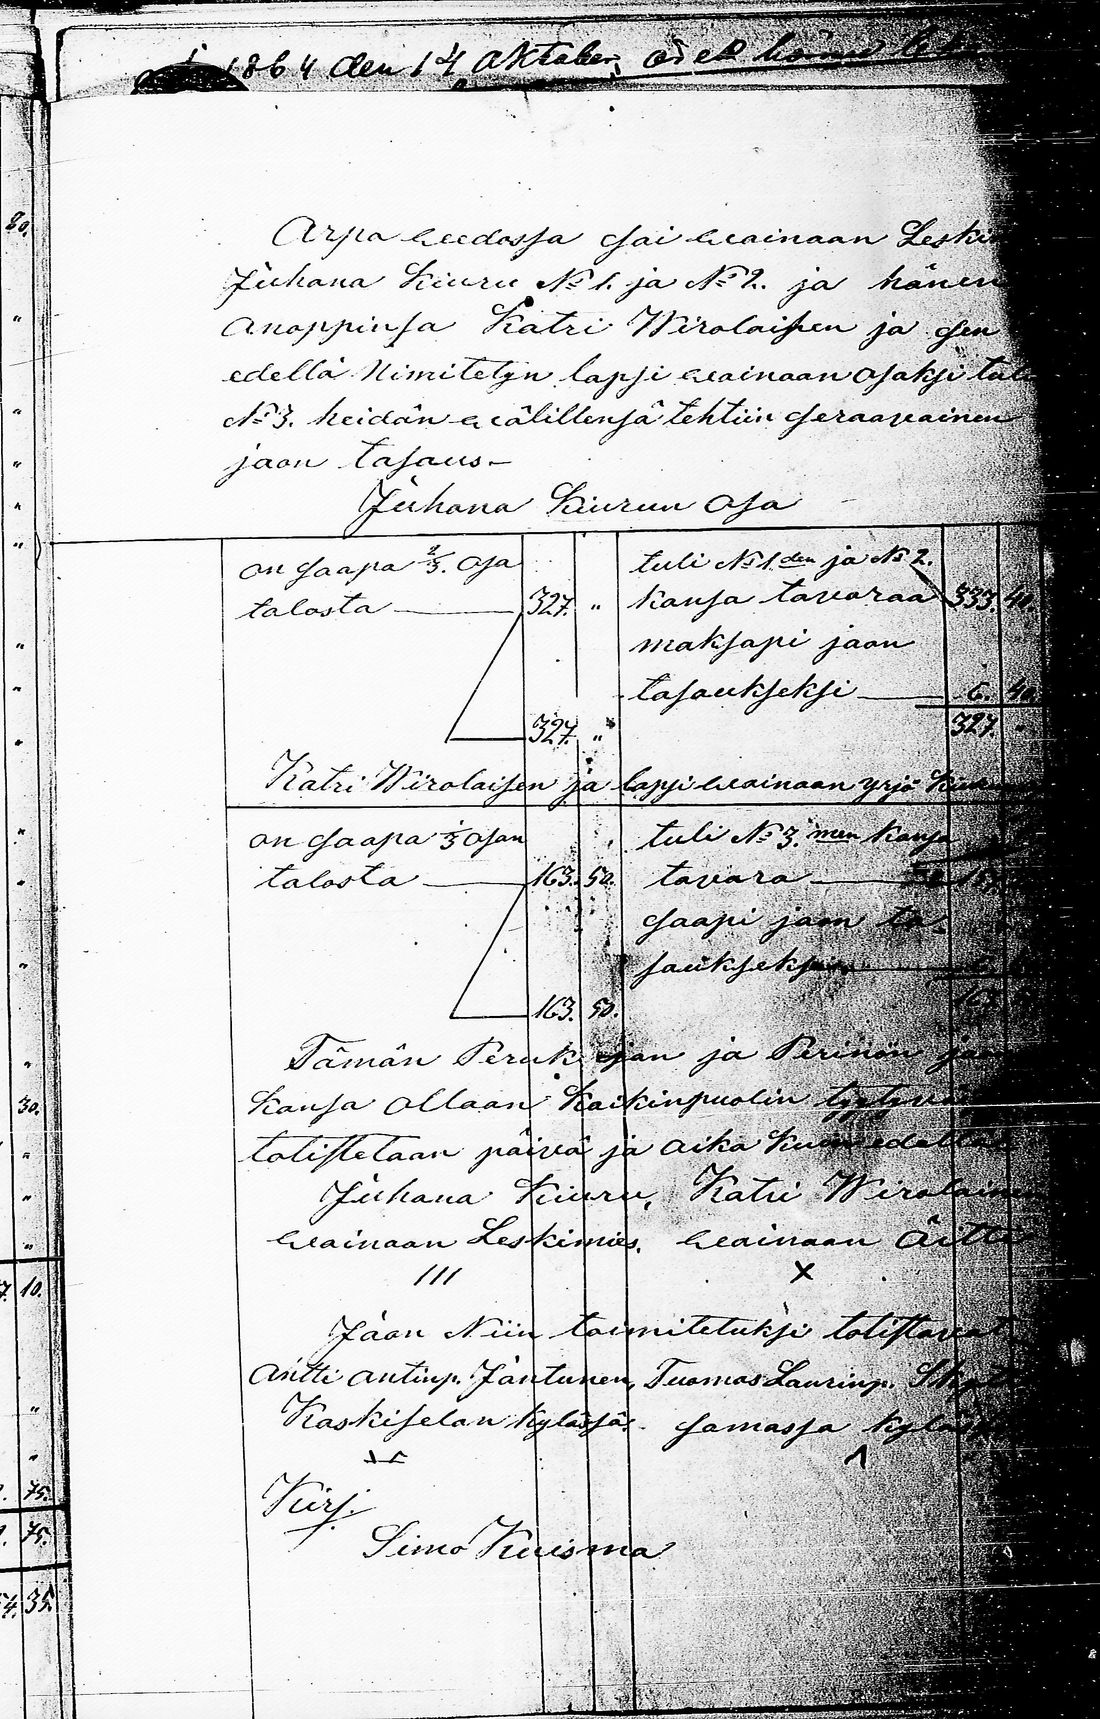 1864 den 14 Oktober,
Arpa weedossa sai wainaan
Juhana Kiuru No 1. ja No 2. ja hänen
Anoppinsa Katri Wirolaisen ja sen
edellä Nimitetyn lapsi wainaan osaksi
No 3. heidän wälillensä tehtiin seraawainen
jaon tasaus—
Juhana Kiurun osa
on saapa 2/3. osa
talosta — 327. "
327. "
tuli No 1.den ja No 2.
kansa tavaraa 333. 40.
maksapi jaon
tasaukseksi — 6. 40.
327. "
Katri Wirolaisen ja lapsi wainaan yrjö
on saapa 1/3 osan
talosta — 163. 50.
163. 50.
tuli No 3.men kansa
tavara —
saapi jaon ta-
saukseksi
Tämän Peruk jan ja Perinön
kansa ollaan kaikinpuolin
totistetaan päivä ja aika kuin edellä
Juhana Kiuru, Katri Wirolainen
wainaan Leskimies. wainaan Äitti
III X
Jaon Niin toimitetuksi totistavat
Antti Antinp. Jäntunen, Tuomas Laurinp.
Kaskiselän kylässä. samassa
Kirj.
Simo Kuisma
80.
30.
10.
75.
75.
35.